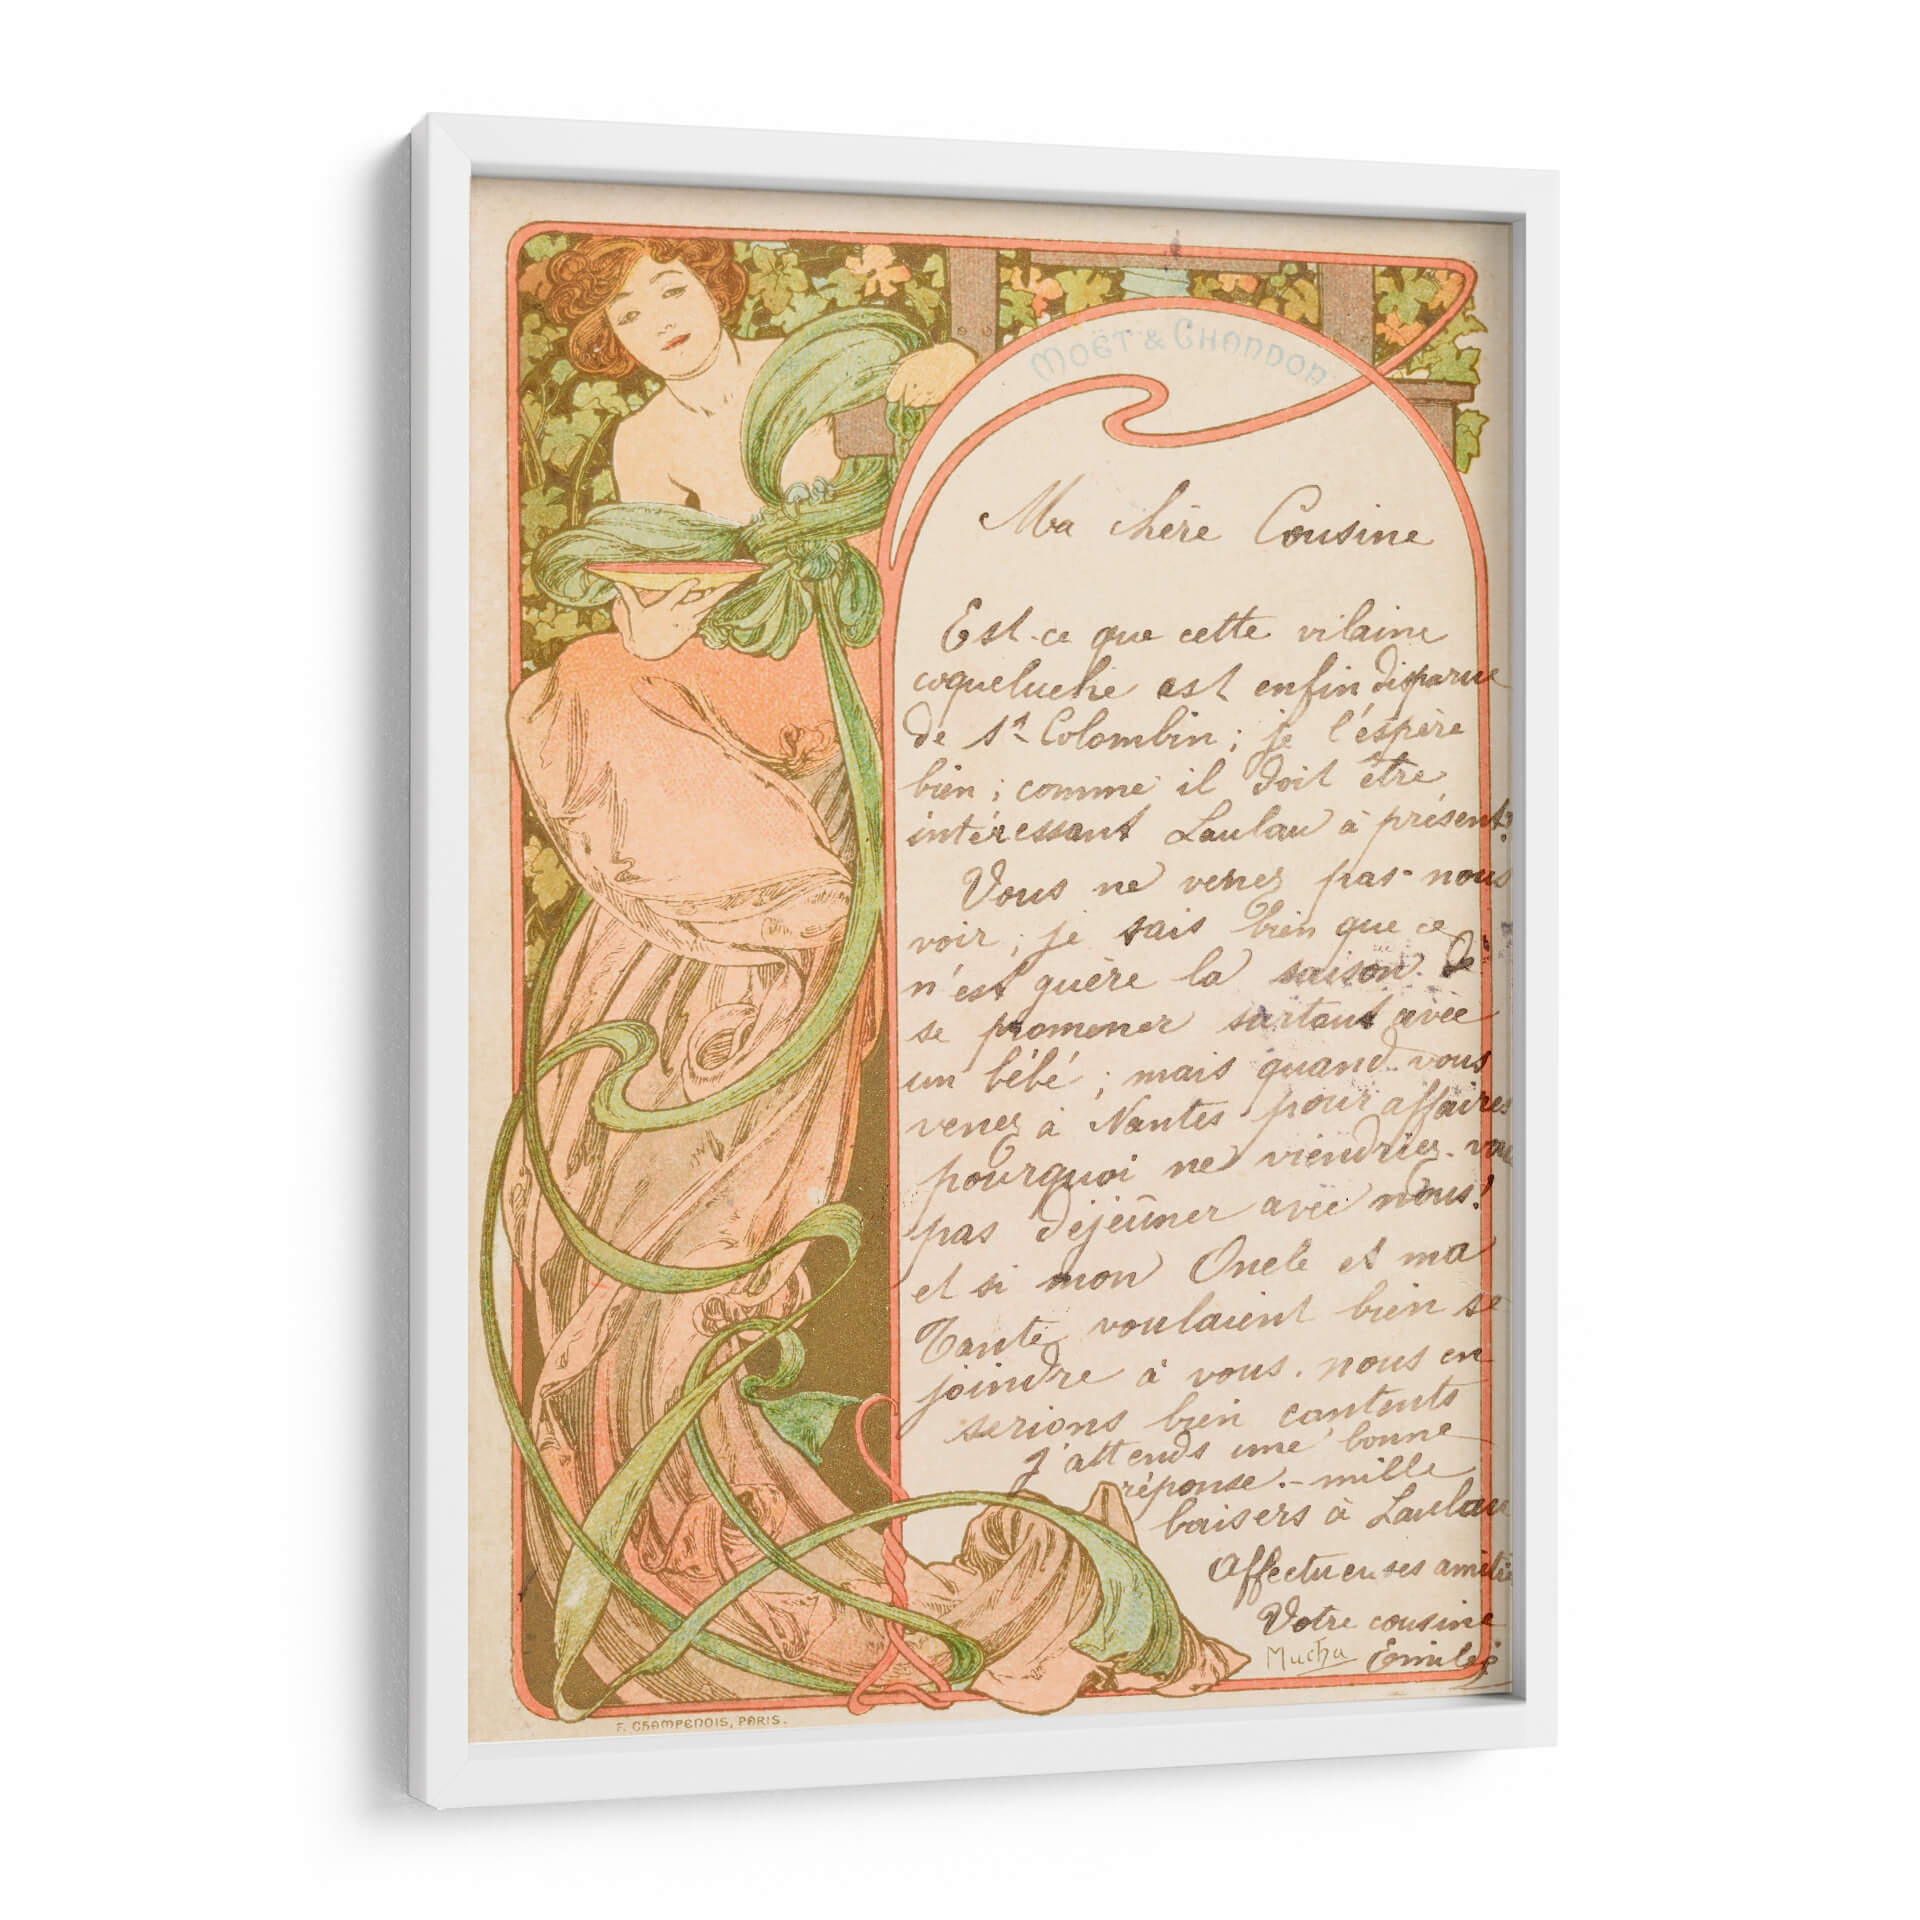 MOËT & CHANDON
Ma chère Cousine
Est-ce que cette vilaine
coqueluche est enfin disparue
de St Colombin ; je l'espère
bien ; comme il doit être
intéressant Laulau à présent.
Vous ne venez pas nous
voir, je sais bien que ce
n'est guère la saison de
se promener surtout avec
un bébé ; mais quand vous
venez à Nantes pour affaires
pourquoi ne viendriez-vous
pas déjeûner avec nous!
et si mon Oncle et ma
Tante voulaient bien se
joindre à vous. nous en
serions bien contents
J'attends une bonne
réponse. - mille
baisers à Laulau
Affectueuses amitiés
Votre cousine
Mucha Emilie
F. CHAMPENOIS, PARIS.